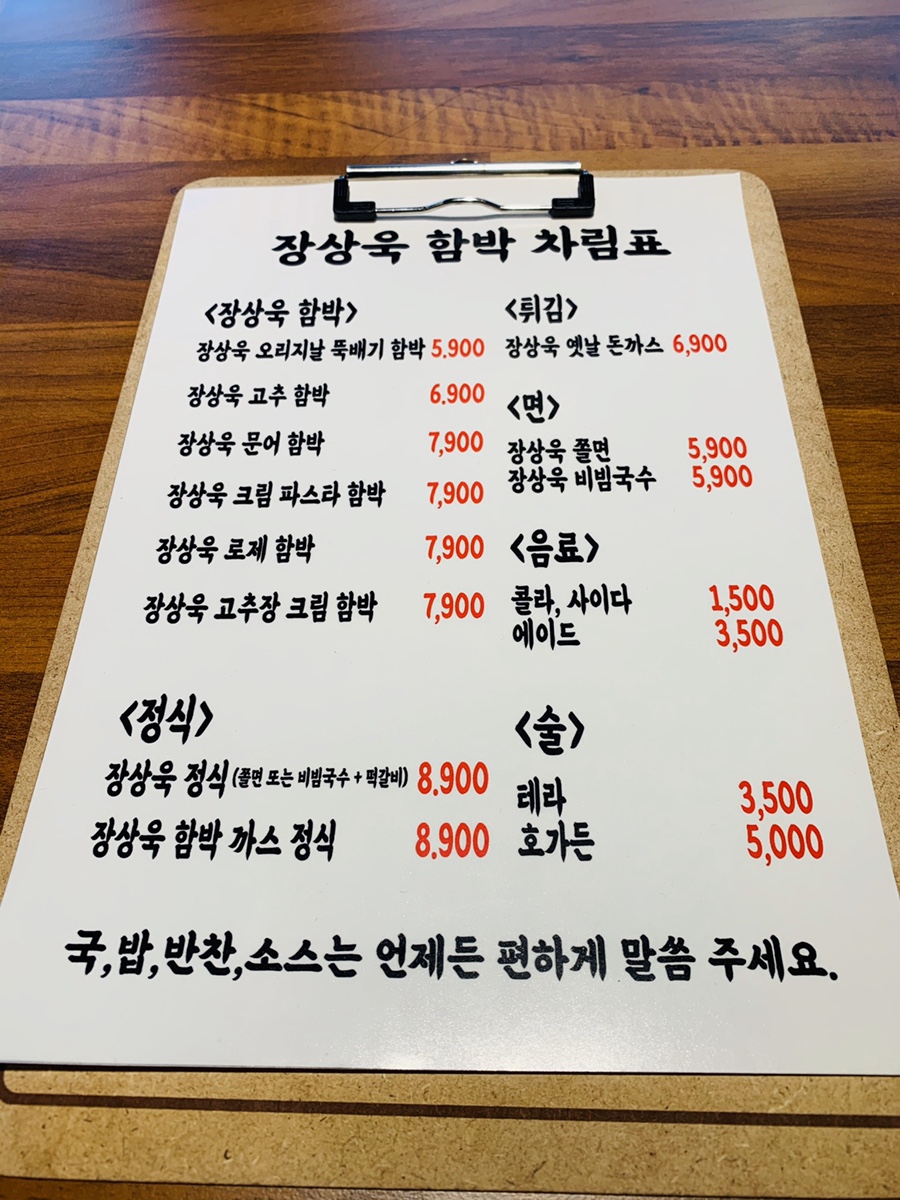 장상욱 함박 차림표
<장상욱 함박>
장상욱 오리지날 뚝배기 함박 5.900
장상욱 고추 함박 6.900
장상욱 문어 함박 7,900
장상욱 크림 파스타 함박 7,900
장상욱 로제 함박 7,900
장상욱 고추장 크림 함박 7,900
<정식>
장상욱 정식 (쫄면 또는 비빔국수 + 떡갈비) 8.900
장상욱 함박 까스 정식 8.900
<튀김>
장상욱 옛날 돈까스 6,900
<면>
장상욱 쫄면 5,900
장상욱 비빔국수 5,900
<음료>
콜라, 사이다 1,500
에이드 3,500
<술>
테라 3,500
호가든 5,000
국,밥,반찬,소스는 언제든 편하게 말씀 주세요.